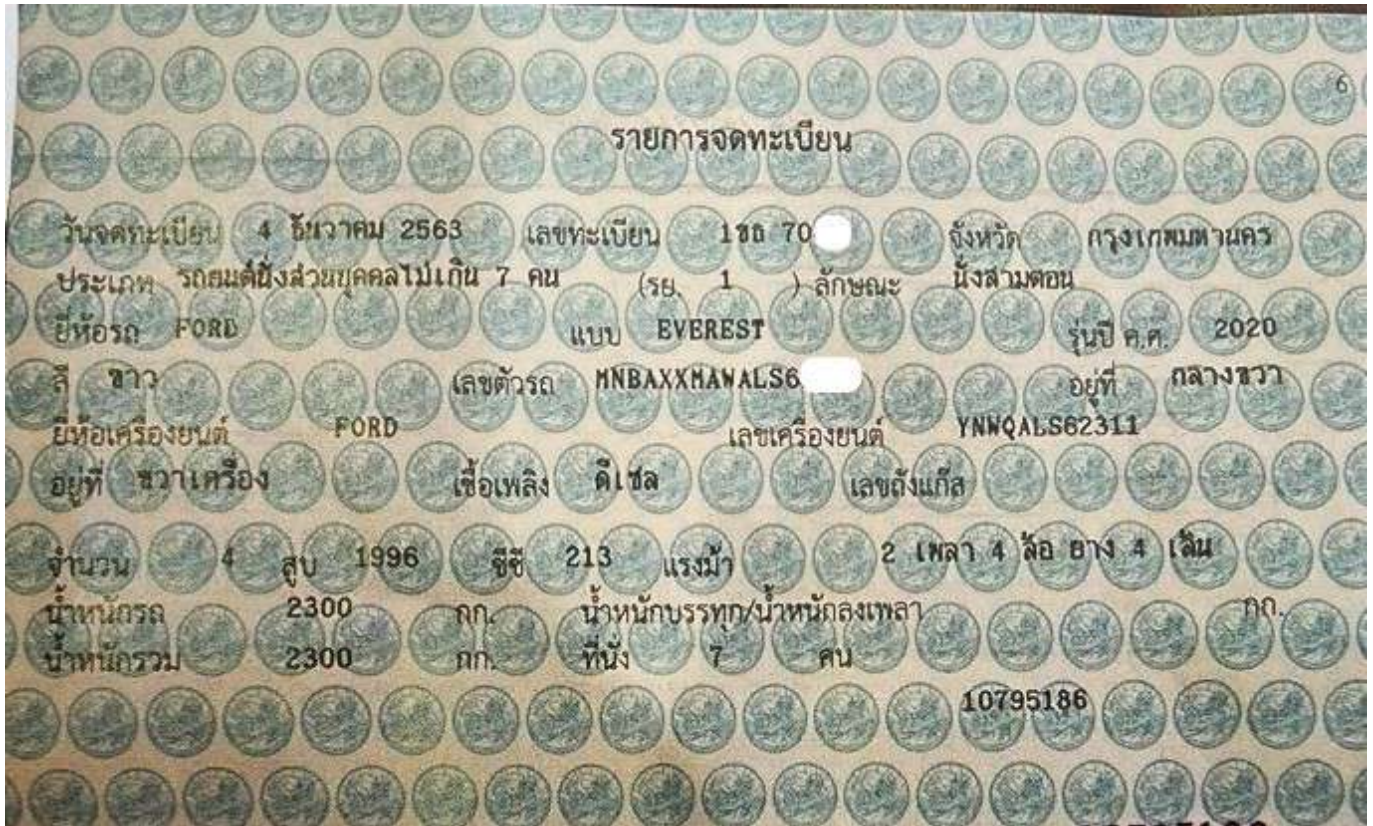 6
รายการจดทะเบียน
วันจดทะเบียน 4 ธันวาคม 2563 เลขทะเบียน 1ขถ 70 จังหวัด กรุงเทพมหานคร
ประเภท รถยนต์นั่งส่วนบุคคลไม่เกิน 7 คน (รย. 1 ) ลักษณะ นั่งสามตอน
ยี่ห้อรถ FORD แบบ EVEREST รุ่นปี ค.ศ. 2020
สี ขาว เลขตัวรถ MNBAXXMAWALS6 อยู่ที่ กลางขวา
ยี่ห้อเครื่องยนต์ FORD เลขเครื่องยนต์ YNWQALS62311
อยู่ที่ ขวาเครื่อง เชื้อเพลิง ดีเซล เลขถังแก๊ส
จำนวน 4 สูบ 1996 ซีซี 213 แรงม้า 2 เพลา 4 ล้อ ยาง 4 เส้น
น้ำหนักรถ 2300 กก. น้ำหนักบรรทุก/น้ำหนักลงเพลา กก.
น้ำหนักรวม 2300 กก. ที่นั่ง 7 คน
10795186